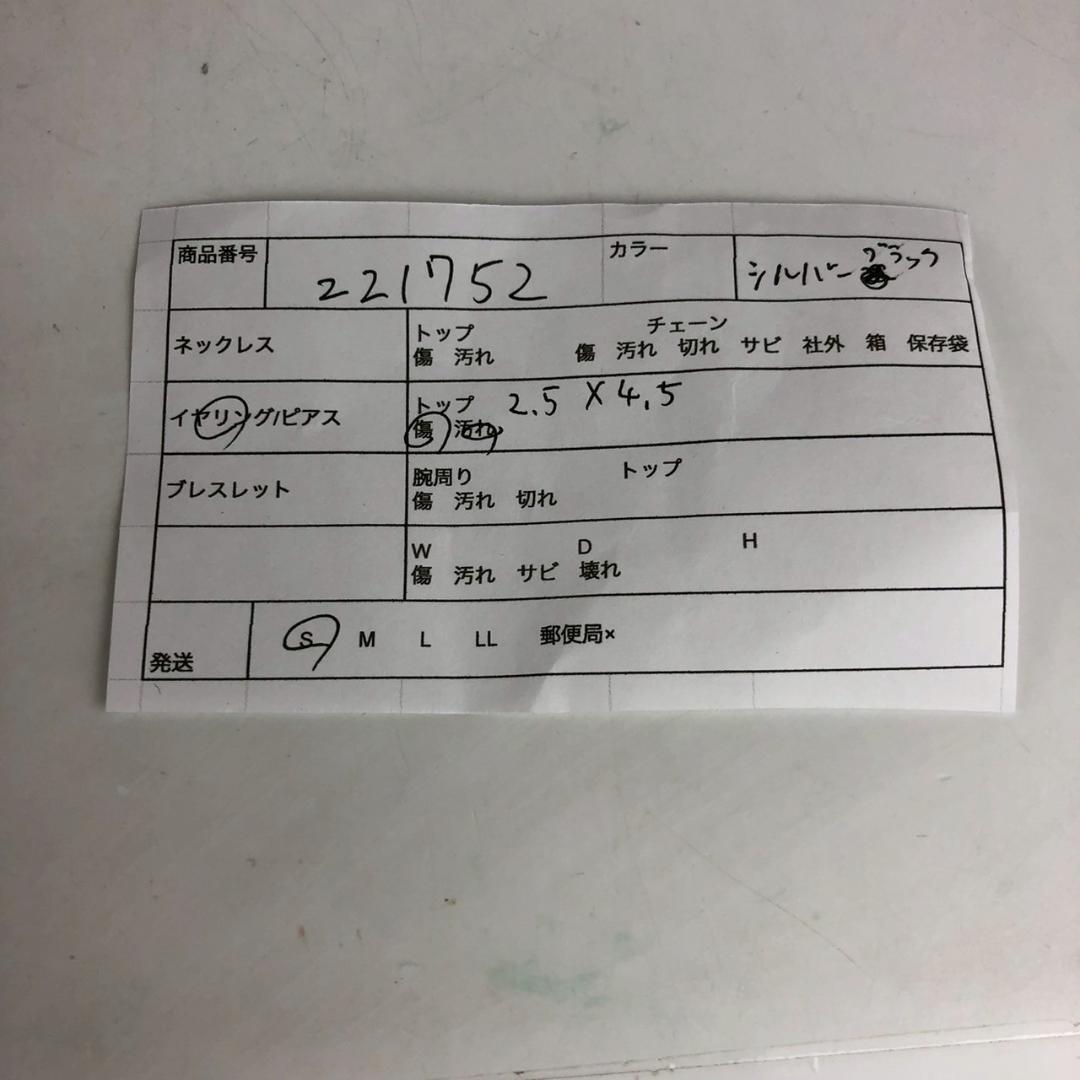 商品番号 221752 カラー シルバー ブラック
ネックレス トップ チェーン
傷 汚れ 傷 汚れ 切れ サビ 社外 箱 保存袋
イヤリング/ピアス トップ 2.5 X 4.5
傷 汚れ
ブレスレット 腕周り トップ
傷 汚れ 切れ
W D H
傷 汚れ サビ 壊れ
発送 S M L LL 郵便局×